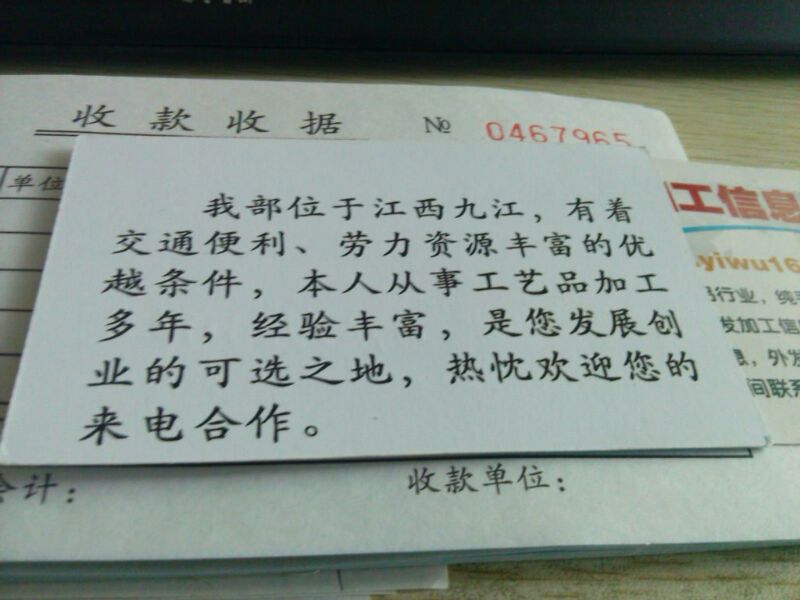 收款收据 № 0467965
单位
我部位于江西九江，有着
交通便利、劳力资源丰富的优
越条件，本人从事工艺品加工
多年，经验丰富，是您发展创
业的可选之地，热忱欢迎您的
来电合作。
工信息
yiwu16
行业，纯
发加工信
息，外发
间联系
会计：
收款单位：